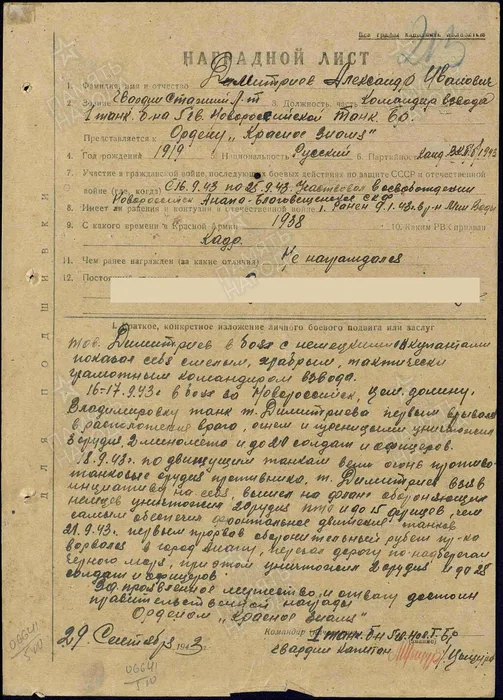 Все графы заполнять полностью
213
НАГРАДНОЙ ЛИСТ
1. Фамилия, имя и отчество Димитриев Александр Иванович
2. Звание Гвардии Старший л-т 3. Должность, часть Командир взвода
1 танк. б-на 5 гв. Новороссийской танк. бр.
Представляется к Ордену "Красное Знамя"
4. Год рождения 1919 5. Национальность Русский 6. Партийность Канд. ВКП(б) 1943
7. Участие в гражданской войне, последующих боевых действиях по защите СССР и отечественной
войне (где, когда) С 16.9.43 по 25.9.43 Участвовал в освобождении
Новороссийск Анапа-Благовещенское СКФ
8. Имеет ли ранения и контузии в отечественной войне 1. Ранен 9.1.43 в р-н Мин Воды
9. С какого времени в Красной Армии 1938 10. Каким РВК призван
Кадр.
11. Чем ранее награжден (за какие отличия) Не награждался
12. Постоянный
I. Краткое, конкретное изложение личного боевого подвига или заслуг
тов. Димитриев в боях с немецкими оккупантами
показал себя смелым, храбрым, тактически
грамотным командиром взвода.
16-17.9.43г. в боях за Новороссийск, Цем. долину,
Владимировку танк т. Димитриева первым врывался
в расположения врага, огнем и гусеницами уничтожил
3 орудия, 2 миномета и до 20 солдат и офицеров.
18.9.43г. по движущим танкам вели огонь противо-
танковые орудия противника, т. Димитриев взяв
инициативу на себя, вышел на фланг обороняющихся
немцев уничтожил 2 орудия ПТО и до 15 фрицев, чем
самым обеспечил фронтальное движение танков
21.9.43г. первым прорвав оборонительный рубеж пр-ка
ворвался в город Анапу, перерезал дорогу по набережной
Черного моря, при этом уничтожил 2 орудия и до 25
солдат и офицеров.
За проявленное мужество и отвагу достоин
правительственной награды
Орденом "Красное Знамя"
29 Сентября 1943г. Командир 1 танк. б-н 5 гв. Нов. Т. Бр
гвардии капитан
06641
06641
для подшивки